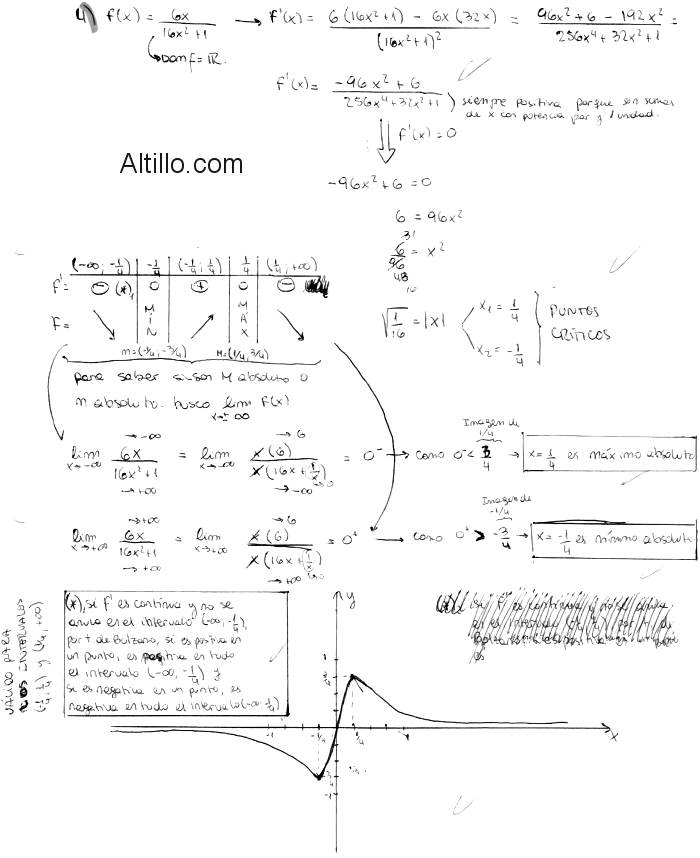 4) f(x) = 6x / 16x²+1 → f'(x) = 6(16x²+1) - 6x(32x) / (16x²+1)² = 96x²+6 - 192x² / 256x⁴+32x²+1 =
Dom f = ℝ.
f'(x) = -96x²+6 / 256x⁴+32x²+1
siempre positiva porque son sumas
de x con potencia par y 1 unidad.
f'(x) = 0
Altillo.com
-96x²+6 = 0
6 = 96x²
6/96 = x²
√1/16 = |x|
x₁ = 1/4
x₂ = -1/4
PUNTOS
CRÍTICOS
(-∞; -1/4) | -1/4 | (-1/4; 1/4) | 1/4 | (1/4; +∞)
f' = - (*) | 0 | + | 0 | -
F = ↘ | MIN | ↗ | MAX | ↘
m=(-1/4, -3/4) M=(1/4, 3/4)
para saber si son M absoluto o
m absoluto. busco lim f(x)
x→±∞
lim x→-∞ 6x / 16x²+1 = lim x→-∞ x(6) / x(16x+1/x) = 0⁻ → como 0⁻ < 3/4 → x = 1/4 es máximo absoluto
→-∞ →+∞ →6 →-∞ →0
Imagen de 1/4
lim x→+∞ 6x / 16x²+1 = lim x→+∞ x(6) / x(16x+1/x) = 0⁺ → como 0⁺ > -3/4 → x = -1/4 es mínimo absoluto
→+∞ →+∞ →6 →+∞ →0
Imagen de -1/4
(*), si f' es continua y no se
anula en el intervalo (-∞, -1/4),
por t de Bolzano, si es positiva en
un punto, es positiva en todo
el intervalo (-∞, -1/4) y
si es negativa en un punto, es
negativa en todo el intervalo (-∞, -1/4)
VÁLIDO PARA
INTERVALOS
(-1/4, 1/4) y (1/4, +∞)
y
1
3/4
-1 -1/4 1/4 1 x
-3/4
-1